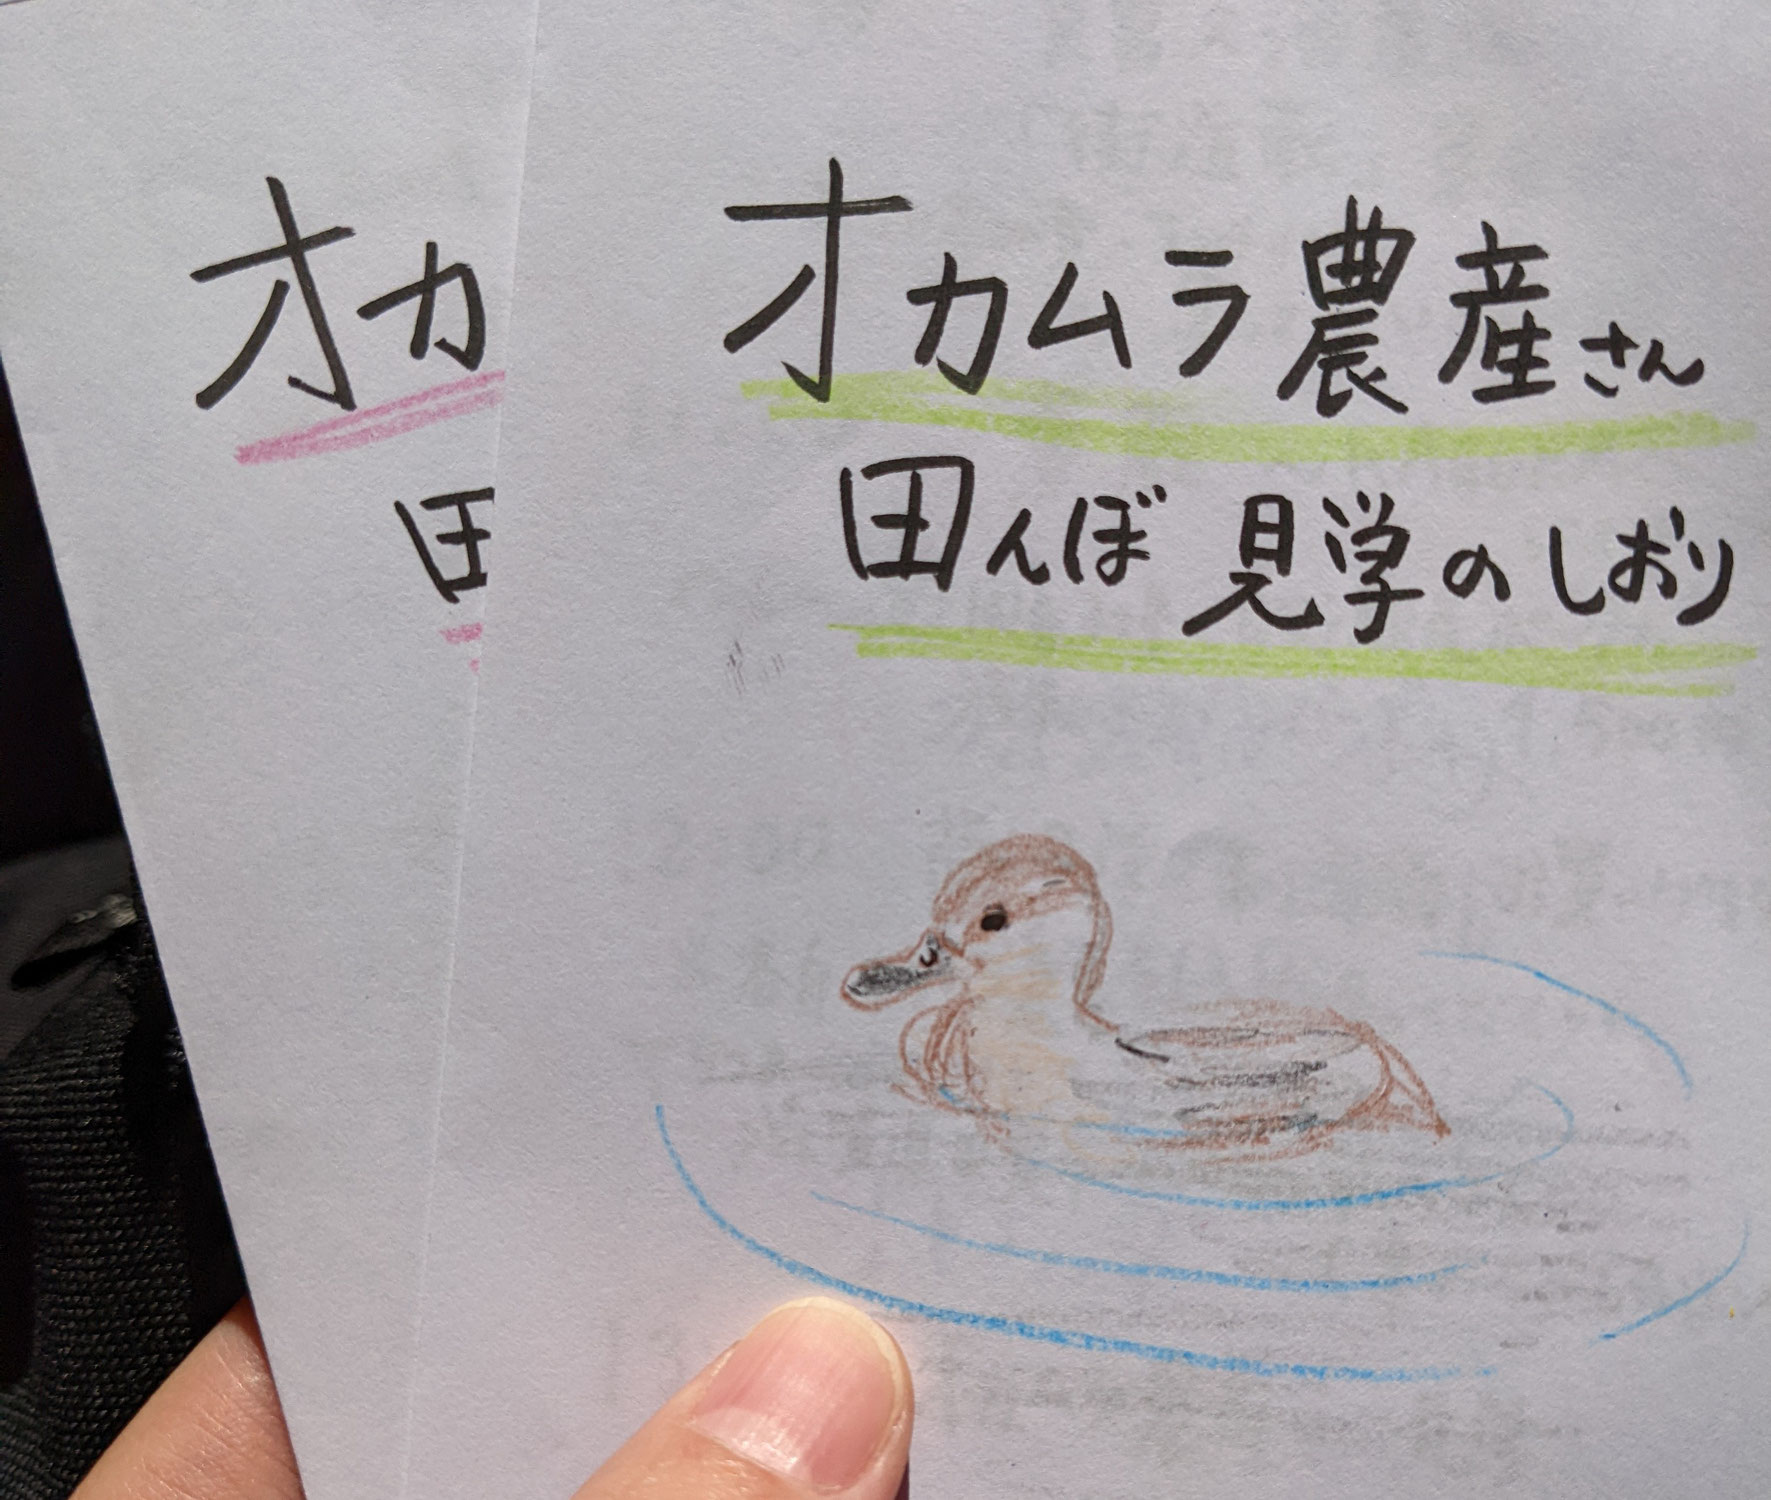 オカ
田
オカムラ農産さん
田んぼ見学のしおり